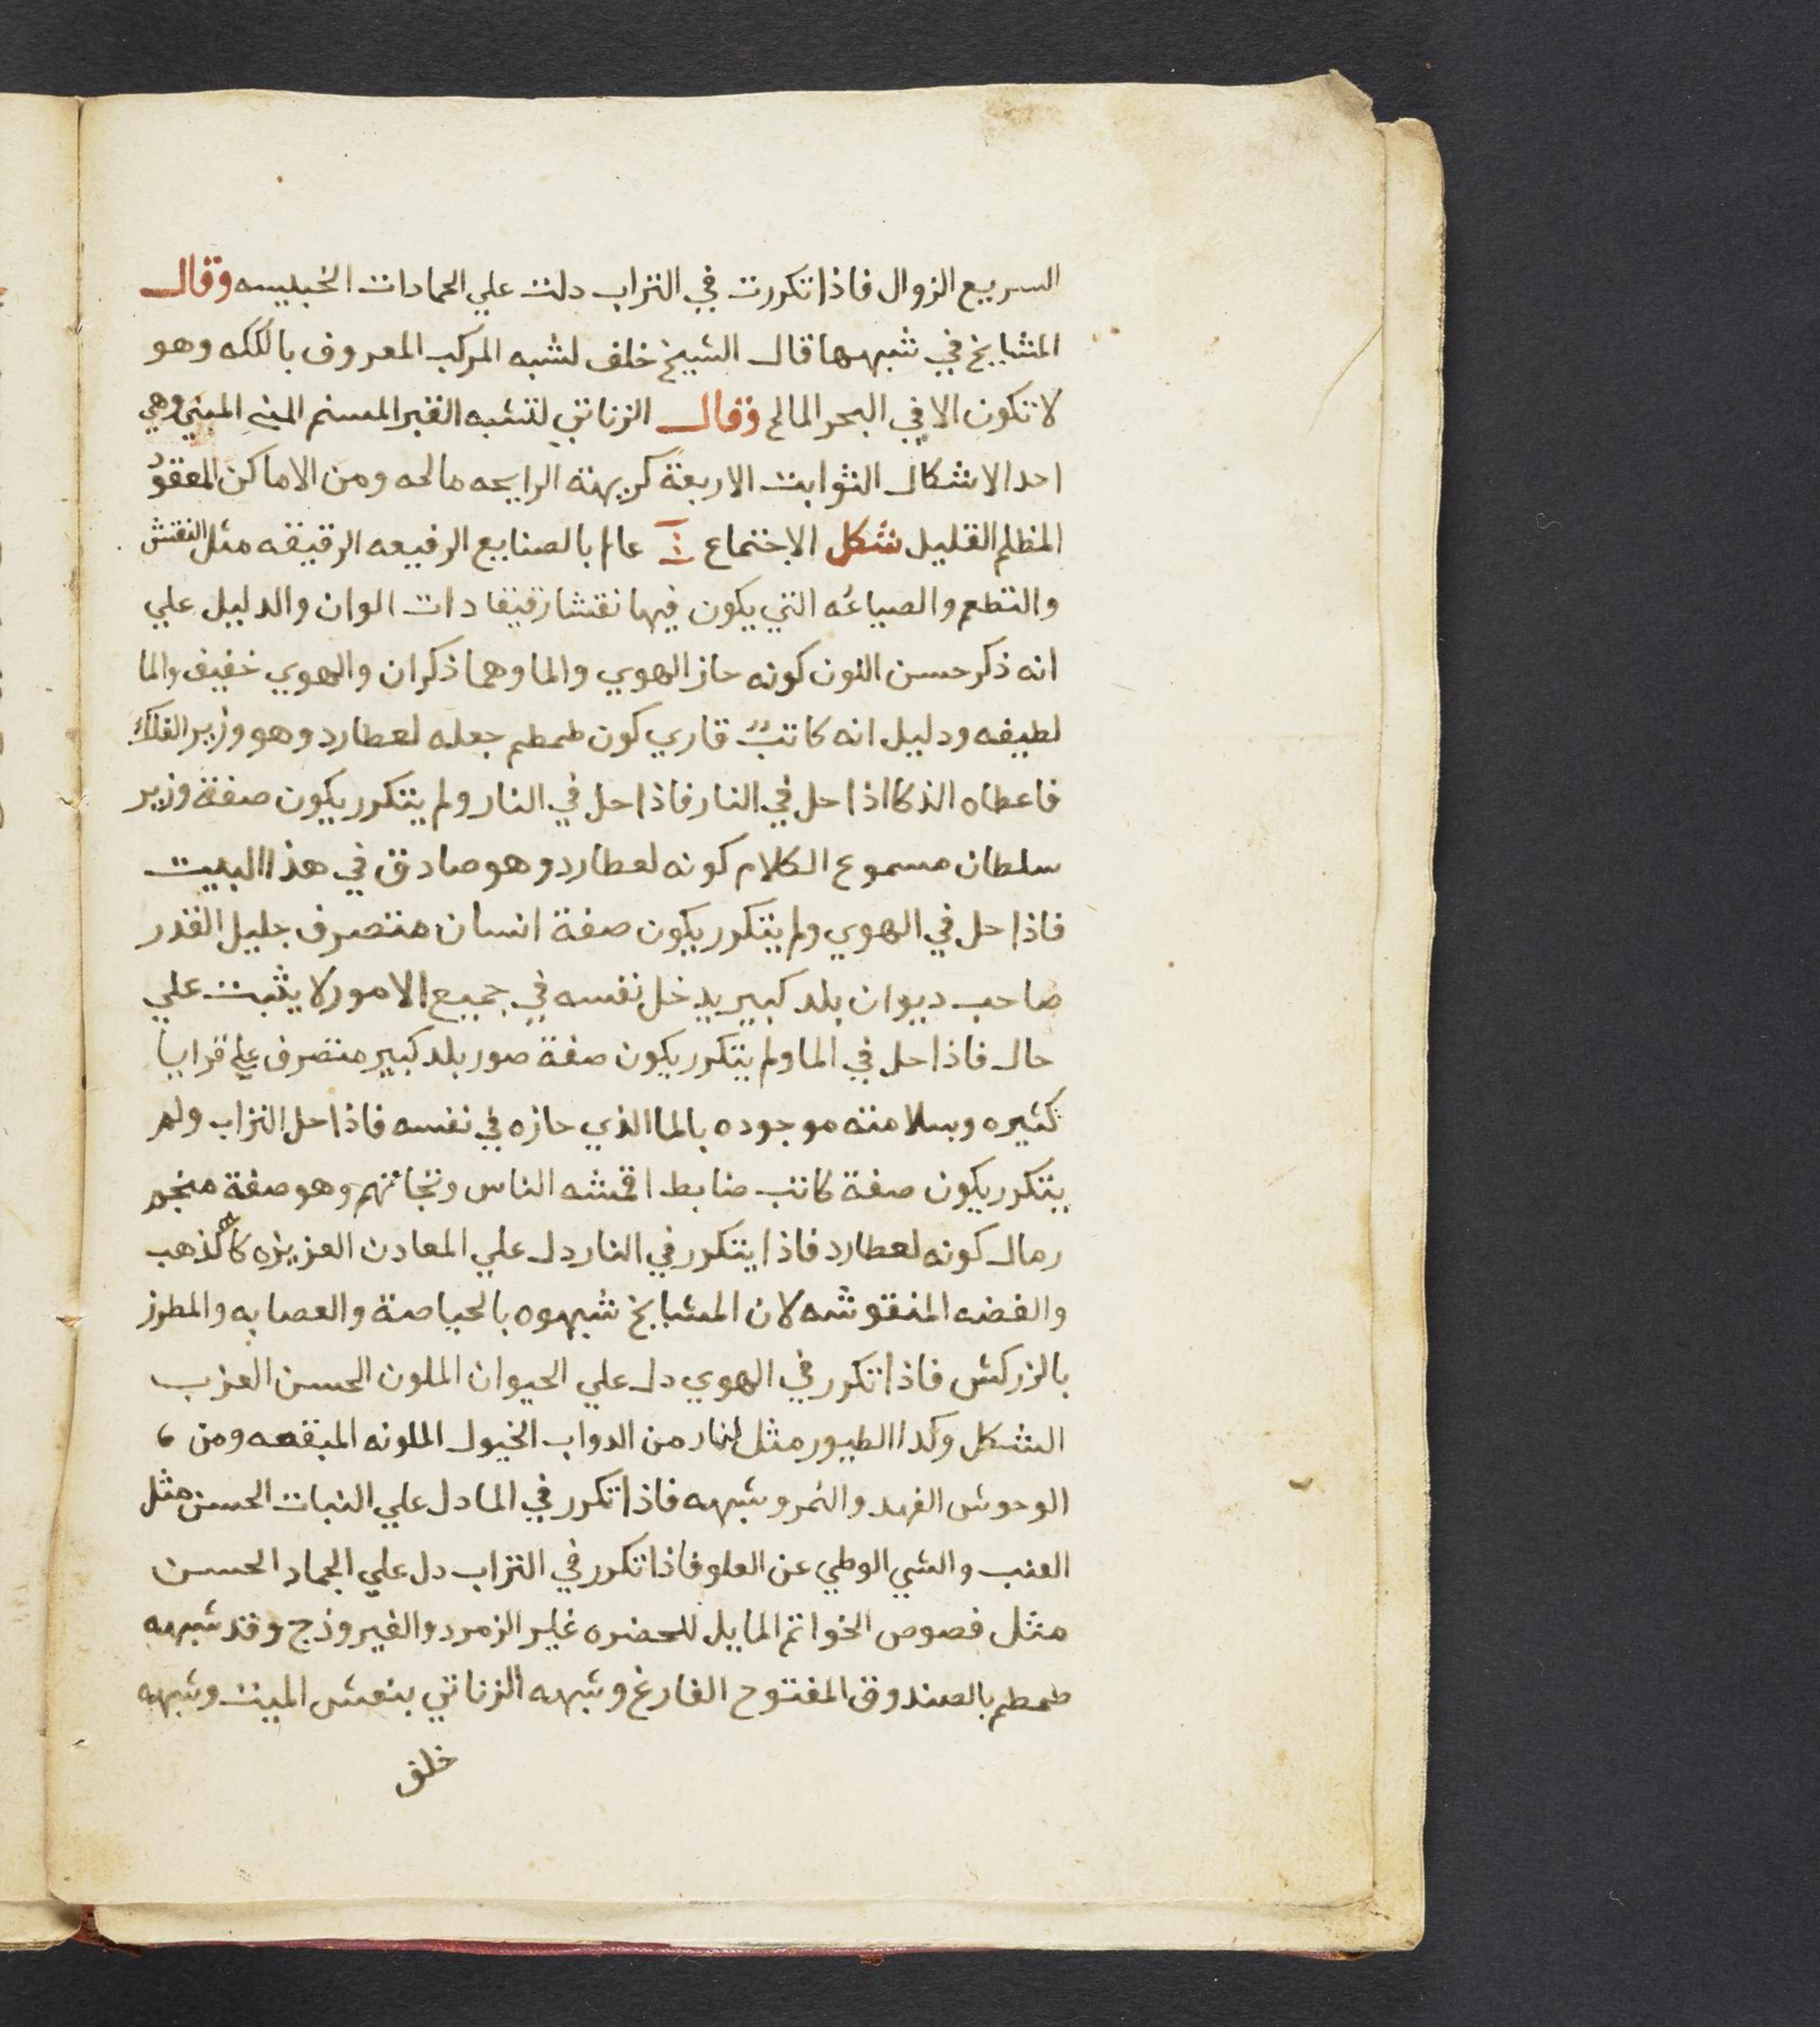 السريع الزوال فاذا تكررت في التراب دلت علي الجمادات الخبيسه وقال
المشايخ في شبهها قال الشيخ خلف لشبه المركب المعروف بالككه وهو
لا تكون الا في البحر المالح وقال الزناتي لتشبه القبر المسنم المبني وهي
احد الاشكال الثوابت الاربعة كريهة الرايحه مالحه ومن الاماكن المعقود
المظلم القليل شكل الاجتماع عالم بالصنايع الرفيعه الرقيقه مثل النقش
والتطعم والصياغه التي يكون فيها نقشا رقيقا دات الوان والدليل علي
انه ذكر حسن اللون كونه حاز الهوي والما وهما ذكران والهوي خفيف والما
لطيفه ودليل انه كاتب قاري كون طمطم جعله لعطارد وهو وزير الفلك
فاعطاه الذكا اذا حل في النار فاذا حل في النار ولم يتكرر يكون صفة وزير
سلطان مسموع الكلام كونه لعطارد وهو صادق في هذا البيت
فاذا حل في الهوي ولم يتكرر يكون صفة انسان متصرف جليل القدر
صاحب ديوان بلد كبير يدخل نفسه في جميع الامور لا يثبت علي
حال فاذا حل في الما ولم يتكرر يكون صفة صور بلد كبير متصرف علي قرايا
كثيره وسلامته موجوده بالما الذي حازه في نفسه فاذا حل التراب ولم
يتكرر يكون صفة كاتب ضابط اقمشه الناس وهو صفة منجم
رمال كونه لعطارد فاذا يتكرر في النار دل علي المعادن العزيزه كالذهب
والفضه المنقوشه لان المشايخ شبهوه بالحياصة والعصابه والمطرز
بالزركش فاذا تكرر في الهوي دل علي الحيوان الملون الحسن العزب
الشكل وكدا الطيور مثل من الدواب الخيول الملونه المبقعه ومن
الوحوش الفهد والنمر وشبهه فاذا تكرر في الما دل علي النبات الحسن مثل
العنب والشي الوطي عن العلو فاذا تكرر في التراب دل علي الجماد الحسن
مثل فصوص الخواتم المايل للحضره غلير الزمرد والفيروذج وقد شبهه
طمطم بالصندوق المفتوح الفارغ وشبهه الزناتي بنعش الميت وشبهه
خلف